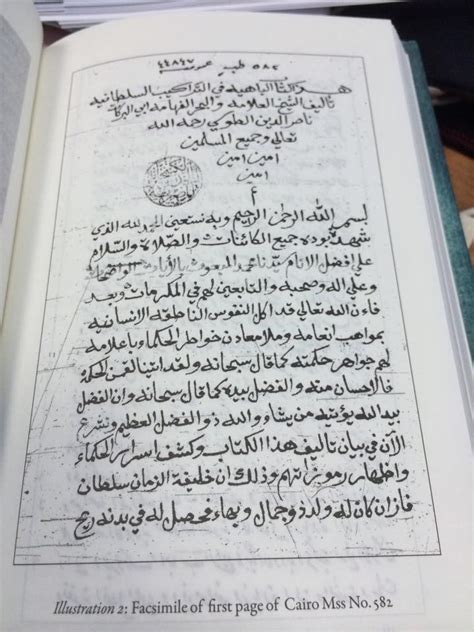 ٥٨٢ طب ٤٤٨٤٧
هذا الباهية في التراكيب السلطانية
تأليف الشيخ العلامة والبحر الفهامة ابي البركات
ناصر الدين الطوسي رحمه الله
تعالى وجميع المسلمين
امين امين
امين
بسم الله الرحمن الرحيم وبه نستعين الحمد لله الذي
شهدت بوجوده جميع الكائنات والصلاة والسلام
على افضل الانام سيدنا محمد المبعوث بالآيات الواضحات
وعلى اله وصحبه والتابعين لهم في المكرمات وبعد
فان الله تعالى قد اكمل النفوس الناطقة الانسانية
بمواهب انعامه وملا معادن خواطر الحكما وباعلامه
لهم جواهر حكمته كما قال سبحانه ولقد اتينا لقمن الحكمة
فالاحسان منه والفضل بيده كما قال سبحانه وان الفضل
بيد الله يؤتيه من يشاء والله ذو الفضل العظيم ونشرع
الآن في بيان تاليف هذا الكتاب وكشف اسرار الحكماء
واظهار رموزتهم وذلك ان خليفة الزمان سلطان
فازان كان له ولد ذو جمال وبهاء فحصل له في بدنه ريح
Illustration 2: Facsimile of first page of Cairo Mss No. 582